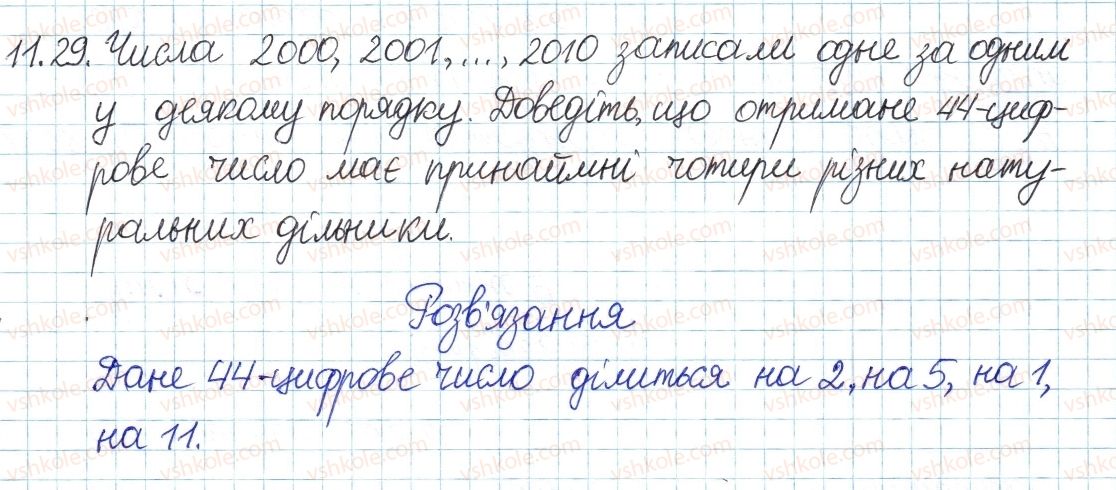 11.29. Числа 2000, 2001, ..., 2010 записали одне за одним
у деякому порядку. Доведіть, що отримане 44-циф-
рове число має принаймні чотири різних нату-
ральних дільники.
Розв'язання
Дане 44-цифрове число ділиться на 2, на 5, на 1,
на 11.
vshkole.com